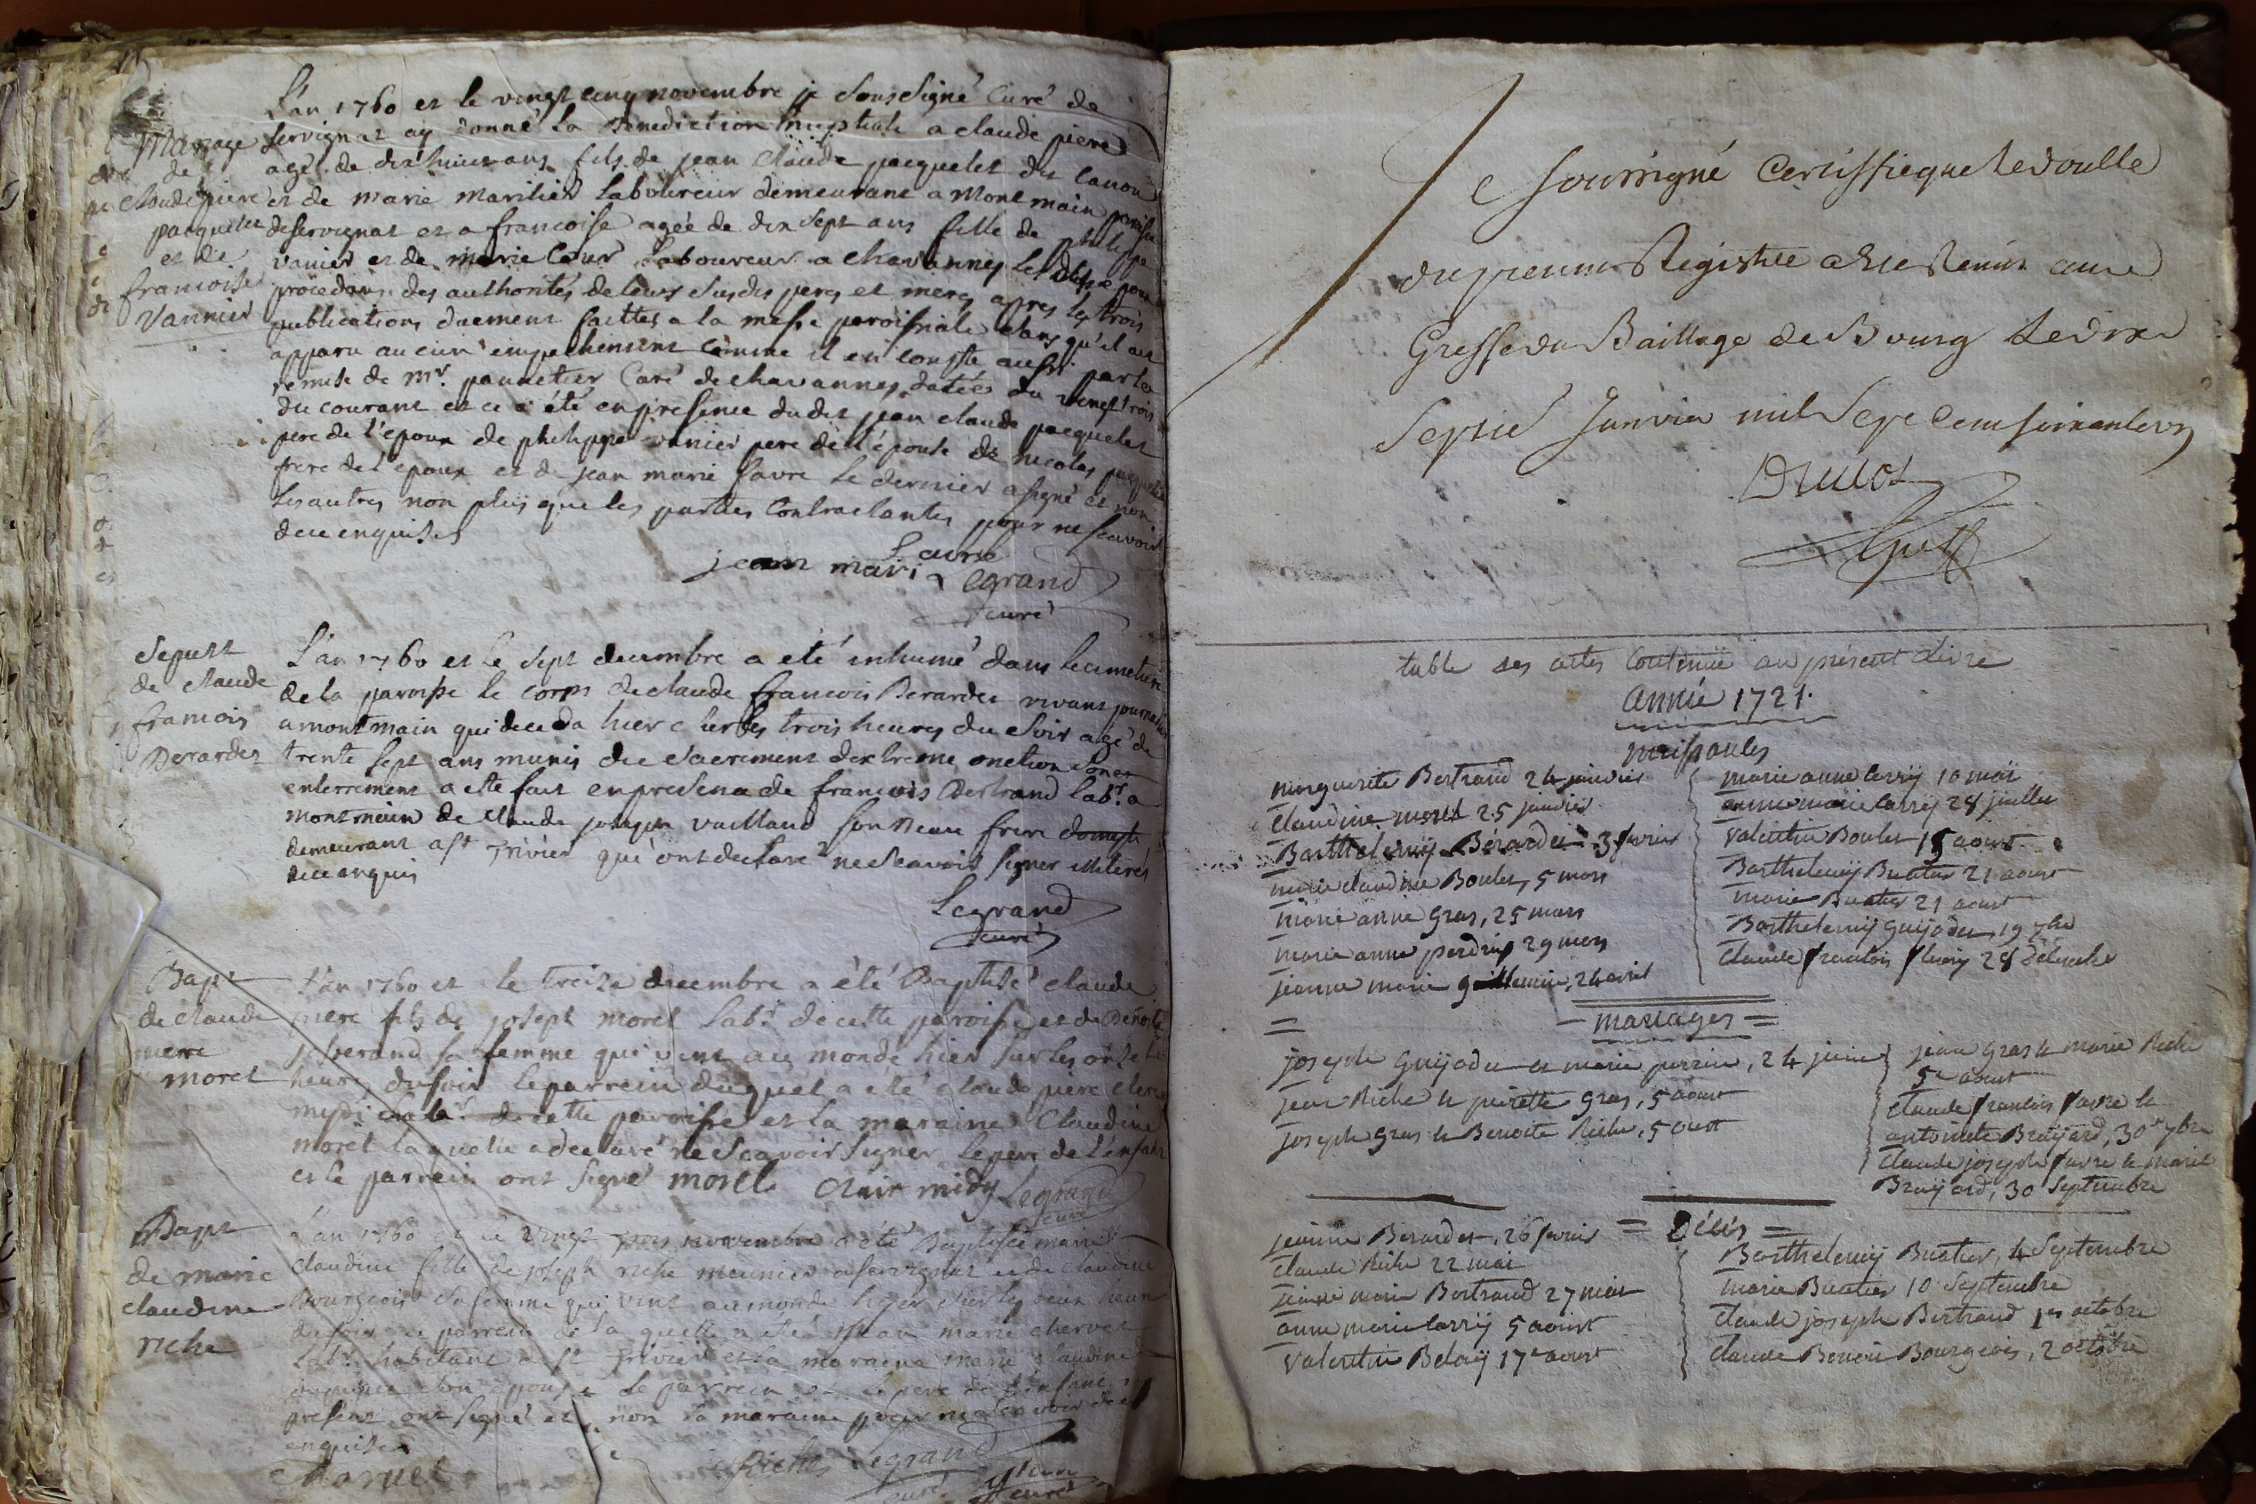 Mariage
de
Claude piere
pacquelet
et de
francoise
Vannier
L'an 1760 et le vingt cinq novembre je sousigné Curé de
servignat ay donné la Benediction nuptiale a claude piere
agé de dix huit ans fils de jean Claude pacquelet du Canon
et de marie laboureur demeurant a Montmain paroisse
de servignat et a francoise ageé de dix sept ans fille de philippe
vanier et de marie Coeur Laboureur a chavannes
procedans des authorités de leurs susdis peres et meres apres les trois
publications duement faittes a la messe paroissiale sans qu'il ait
apparu aucun empechement comme il en conste aussi par la
remise de Mr. pannetier Curé de chavannes datée du vingt trois
du courant et ce a été en presence dudit jean claude pacquelet
pere de l'epoux de philippe vanier pere de l'épouse de nicolas pacquelet
frere de l'epoux et de jean marie favre le dernier a signé et non
les autres non plus que les parties Contractantes pour ne scavoir
de ce enquises
favre
jean mari Legrand
curé
Sepult
de Claude
francois
Berardet
L'an 1760 et le sept decembre a eté inhumé dans le cimetiere
de la paroisse le corps de claude francois Berardet vivant journalier
a montmain qui deceda hier trois heures du soir agé de
trente sept ans munis du sacrement dextreme onction son
enterrement a ette fait en presence de francois Bertrand labr. a
montmain de Claude vailland son Beau frere
demeurant a st Trivier qui ont declare ne scavoir signer illiteres
de ce enquis
Legrand
curé
Bapt
de claude
mere
morel
L'an 1760 et le treize decembre a été Baptisé claude
mere fils de joseph morel labr. de cette paroisse et de Benoite
sa femme qui vint au monde hier sur les onze
heures du soir le parrein duquel a été claude
de cette paroisse et la maraine Claudine
morel laquelle a declaré ne scavoir signer le pere de l'enfant
et le parrein ont signé morel Clair midy Legrand
curé
Bapt
de marie
claudine
riche
L'an 1760 et le vingt novembre a été Baptisée marie
claudine fille de joseph riche meunier a servignat et de claudine
Bourgeois sa femme qui vint au monde hier sur les deux heures
du soir le parrein de laquelle a été jean marie chervet
labr. habitant a st Trivier et la maraine marie claudine
son epouse le parrein et le pere de l'enfant
present ont signé et non la maraine pour ne scavoir de ce
enquise
Riche Legrand
curé
Je soussigné Certiffie que le double
du present Registre a Eté Remis au
Greffe du Bailliage de Bourg le dix
Sept Janvier mil Sept Cent soixante un
table des actes Contenu au présent Livre
année 1721.
Margueritte Bertrand 24 janvier
Claudine morel 25 janvier
Barthelemy Bérardet 3 fevrier
marie claudine Boulet, 5 mars
marie anne gras, 25 mars
marie anne perdrix 29 mars
jeanne marie guillemin, 24 avril
marie anne Carrÿ 10 maï
anne marie Carrÿ 28 juillet
Valentin Boulet 15 aoust
Barthelemÿ Buatier 21 aoust
marie Buatier 21 aoust
Barthelemÿ guÿodet, 19 7bre
= mariages =
joseph guÿodet et marie perrin, 24 juin
jean Riche et pierette gras, 5 aoust
joseph gras et Benoite Riche, 5 aoust
jean gras et marie Riche
5e aoust
Claude francois favre et
antoinette Braÿard, 30 7bre
Claude joseph favre et marie
Braÿard, 30 Septembre
= Décès =
jeanne Berardet, 26 fevrier
Claude Riche 22 mai
jeanne marie Bertrand 27 mai
anne marie Carrÿ 5 aoust
Valentin 17e aoust
Barthelemÿ Buatier, 4 Septembre
marie Buatier 10 Septembre
Claude joseph Bertrand 1er octobre
Claude Benoit Bourgeois, 2 octobre